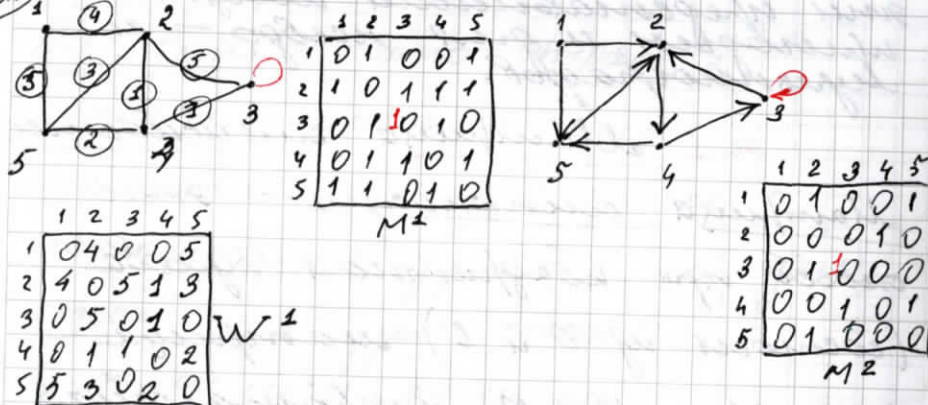 1 4 2
3 3 1 5
3 3
5 2 4
1 2 3 4 5
1 0 1 0 0 1
2 1 0 1 1 1
3 0 1 1 0 1 0
4 0 1 1 0 1
5 1 1 0 1 0
M1
1 2
3
5 4
1 2 3 4 5
1 0 1 0 0 1
2 0 0 0 1 0
3 0 1 1 0 0 0
4 0 0 1 0 1
5 0 1 0 0 0
M2
1 2 3 4 5
1 0 4 0 0 5
2 4 0 5 1 3
3 0 5 0 1 0
4 0 1 1 0 2
5 5 3 0 2 0
W1